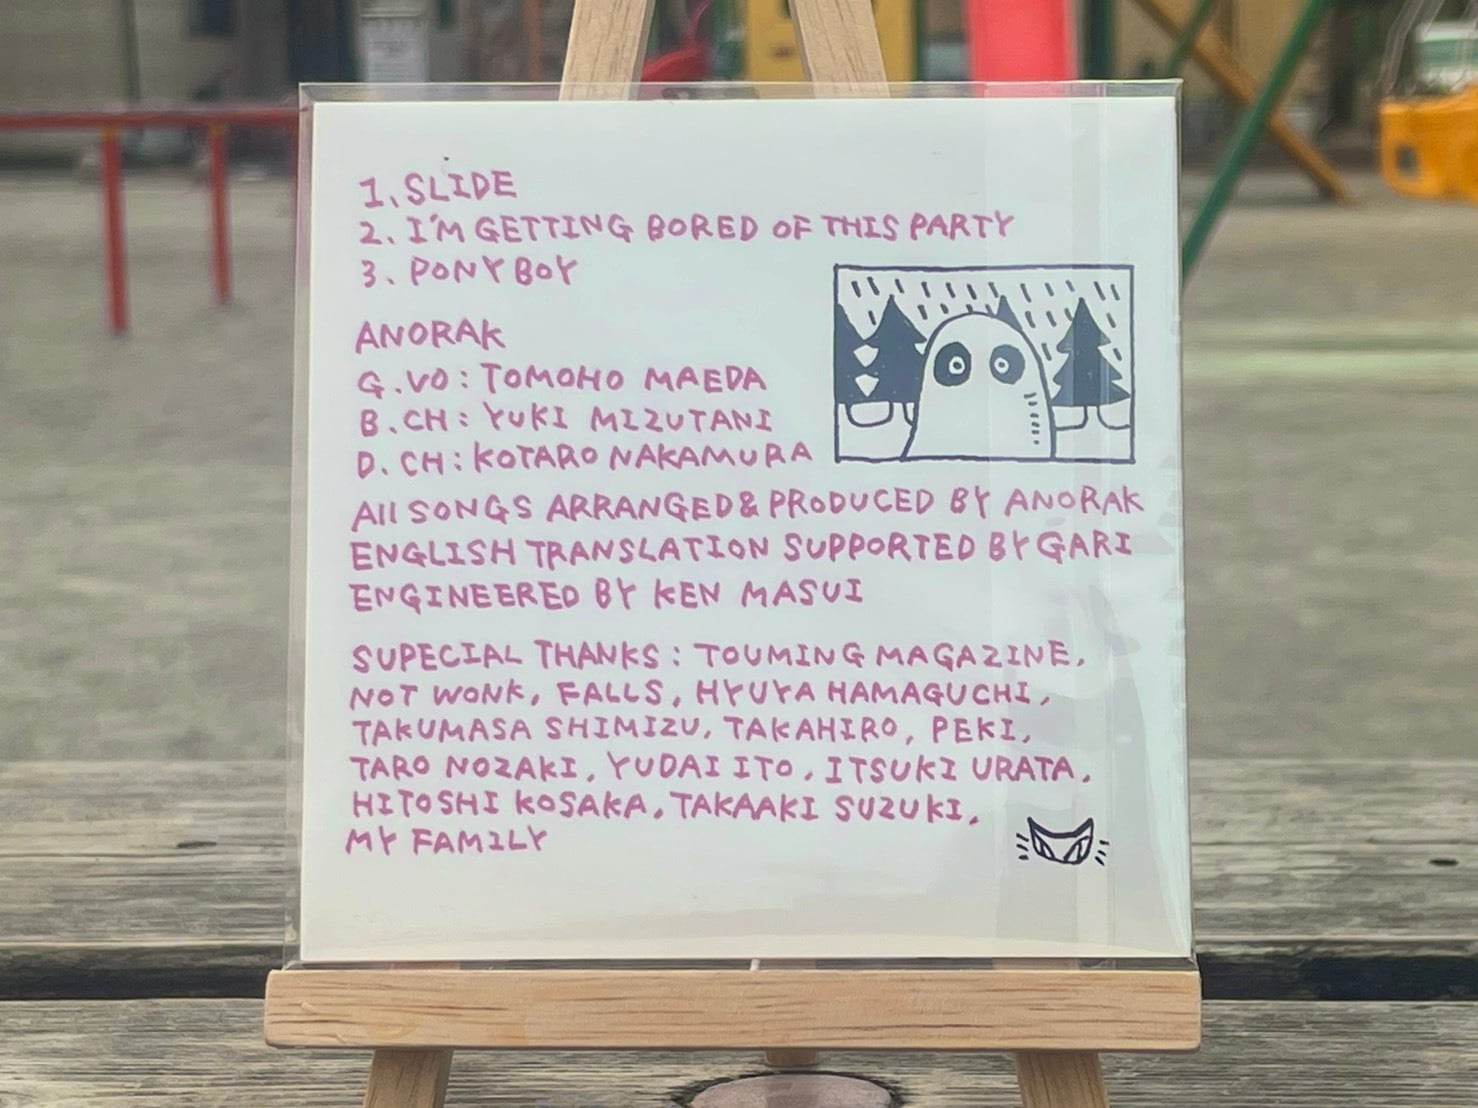 1. SLIDE
2. I'M GETTING BORED OF THIS PARTY
3. PONY BOY
ANORAK
G.VO : TOMOHO MAEDA
B.CH : YUKI MIZUTANI
D.CH : KOTARO NAKAMURA
All SONGS ARRANGED & PRODUCED BY ANORAK
ENGLISH TRANSLATION SUPPORTED BY GARI
ENGINEERED BY KEN MASUI
SUPECIAL THANKS : TOUMING MAGAZINE,
NOT WONK, FALLS, HYUYA HAMAGUCHI,
TAKUMASA SHIMIZU, TAKAHIRO, PEKI,
TARO NOZAKI, YUDAI ITO, ITSUKI URATA,
HITOSHI KOSAKA, TAKAAKI SUZUKI,
MY FAMILY